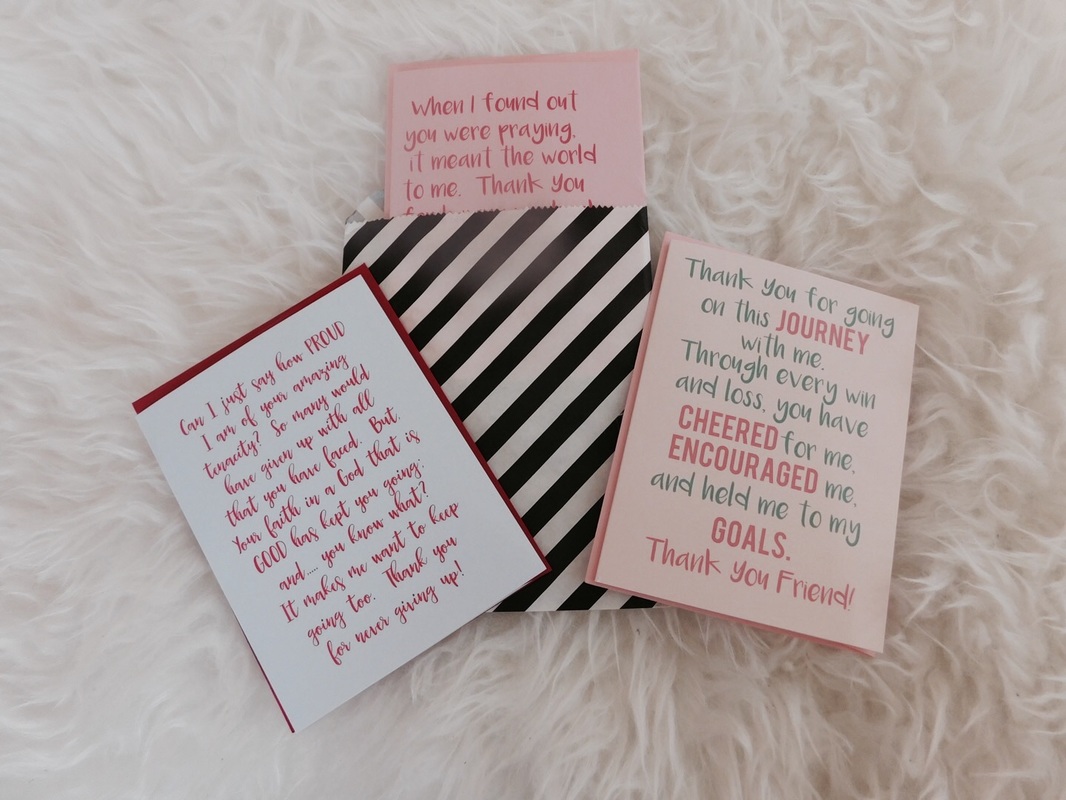 When I found out
you were praying,
it meant the world
to me. Thank you
Can I just say how PROUD
I am of your amazing
tenacity? So many would
have given up with all
that you have faced. But,
Your faith in a God that is
GOOD has kept you going;
and..... you know what?
It makes me want to keep
going too. Thank you
for never giving up!
Thank you for going
on this JOURNEY
with me.
Through every win
and loss, you have
CHEERED for me,
ENCOURAGED me,
and held me to my
GOALS.
Thank you Friend!